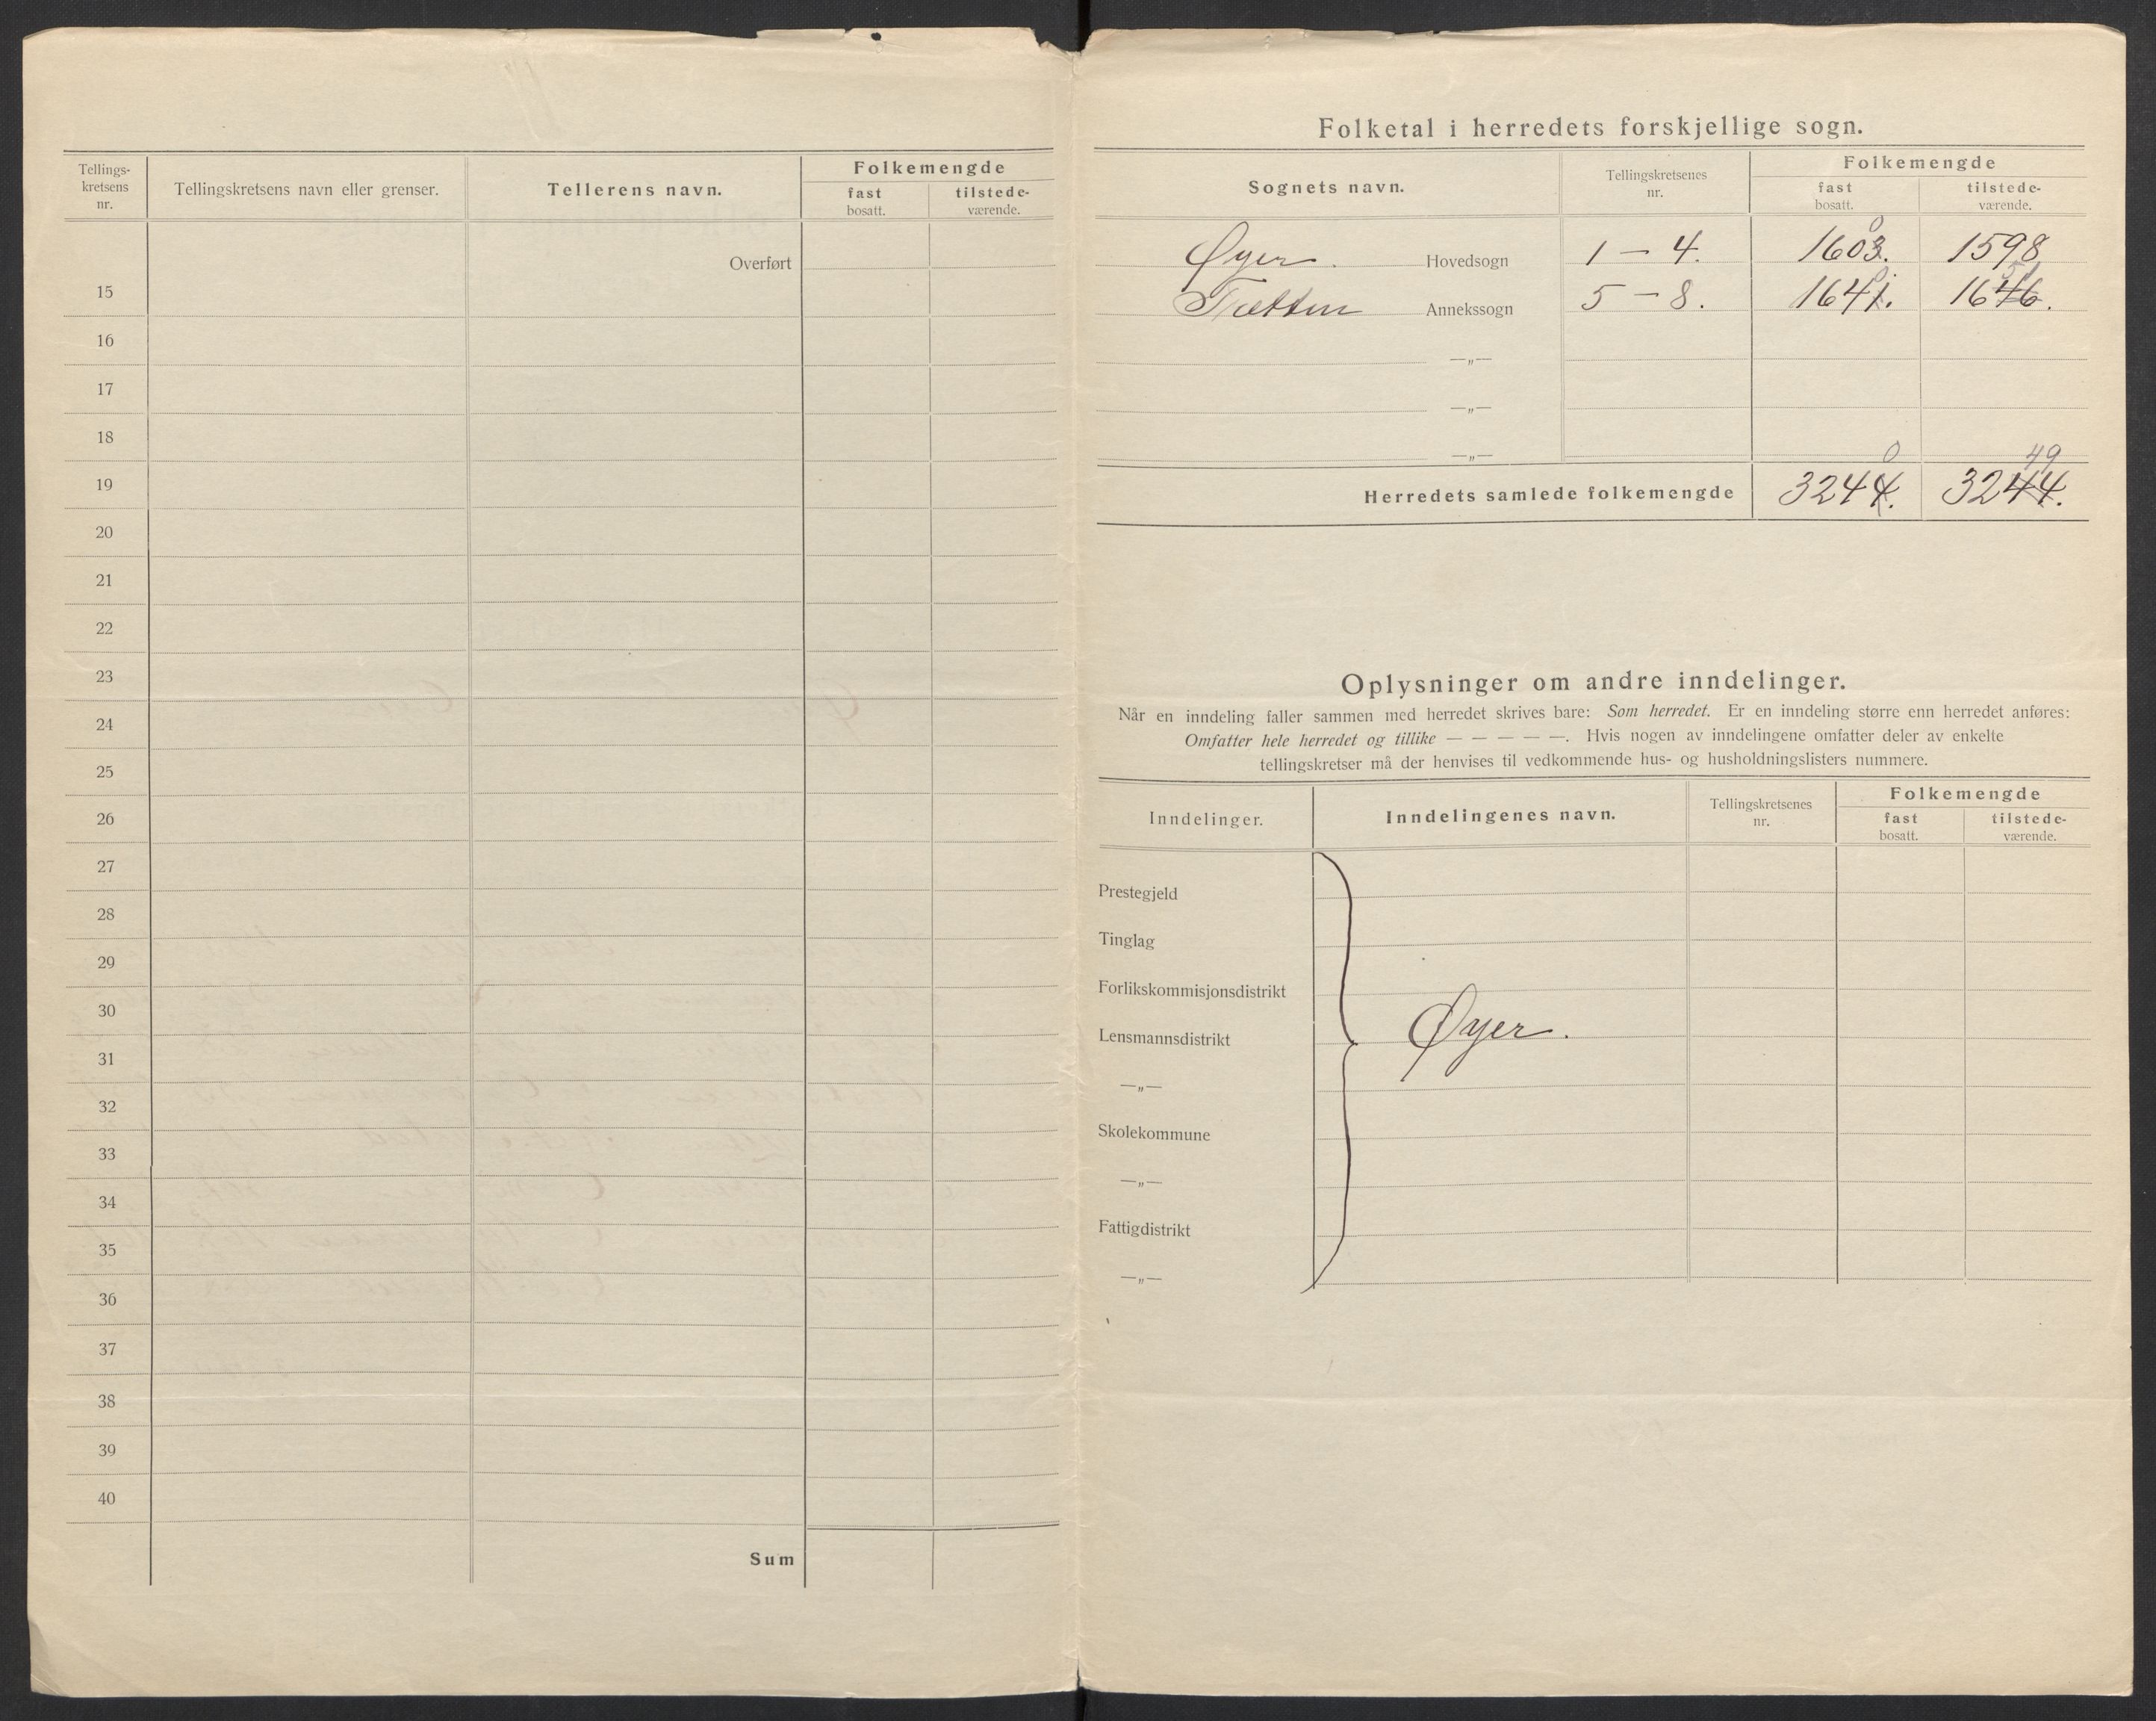 Tellings-
kretsens
nr.
Tellingskretsens navn eller grenser.
Tellerens navn.
Folkemengde
fast
bosatt.
tilstede-
værende.
Overført
15
16
17
18
19
20
21
22
23
24
25
26
27
28
29
30
31
32
33
34
35
36
37
38
39
40
Sum
Folketal i herredets forskjellige sogn.
Sognets navn.
Tellingskretsenes
nr.
Folkemengde
fast
bosatt.
tilstede-
værende.
0
Øyer. Hovedsogn 1 — 4. 1603. 1598
0 51
Tretten Annekssogn 5 — 8. 1641. 1646.
—„—
—„—
—„—
0 49
Herredets samlede folkemengde 3244. 3244.
Oplysninger om andre inndelinger.
Når en inndeling faller sammen med herredet skrives bare: Som herredet. Er en inndeling større enn herredet anføres:
Omfatter hele herredet og tillike — — — — —. Hvis nogen av inndelingene omfatter deler av enkelte
tellingskretser må der henvises til vedkommende hus- og husholdningslisters nummere.
Inndelinger.
Inndelingenes navn.
Tellingskretsenes
nr.
Folkemengde
fast
bosatt.
tilstede-
værende.
Prestegjeld
Tinglag
Forlikskommisjonsdistrikt
Øyer.
Lensmannsdistrikt
—„—
Skolekommune
—„—
Fattigdistrikt
—„—